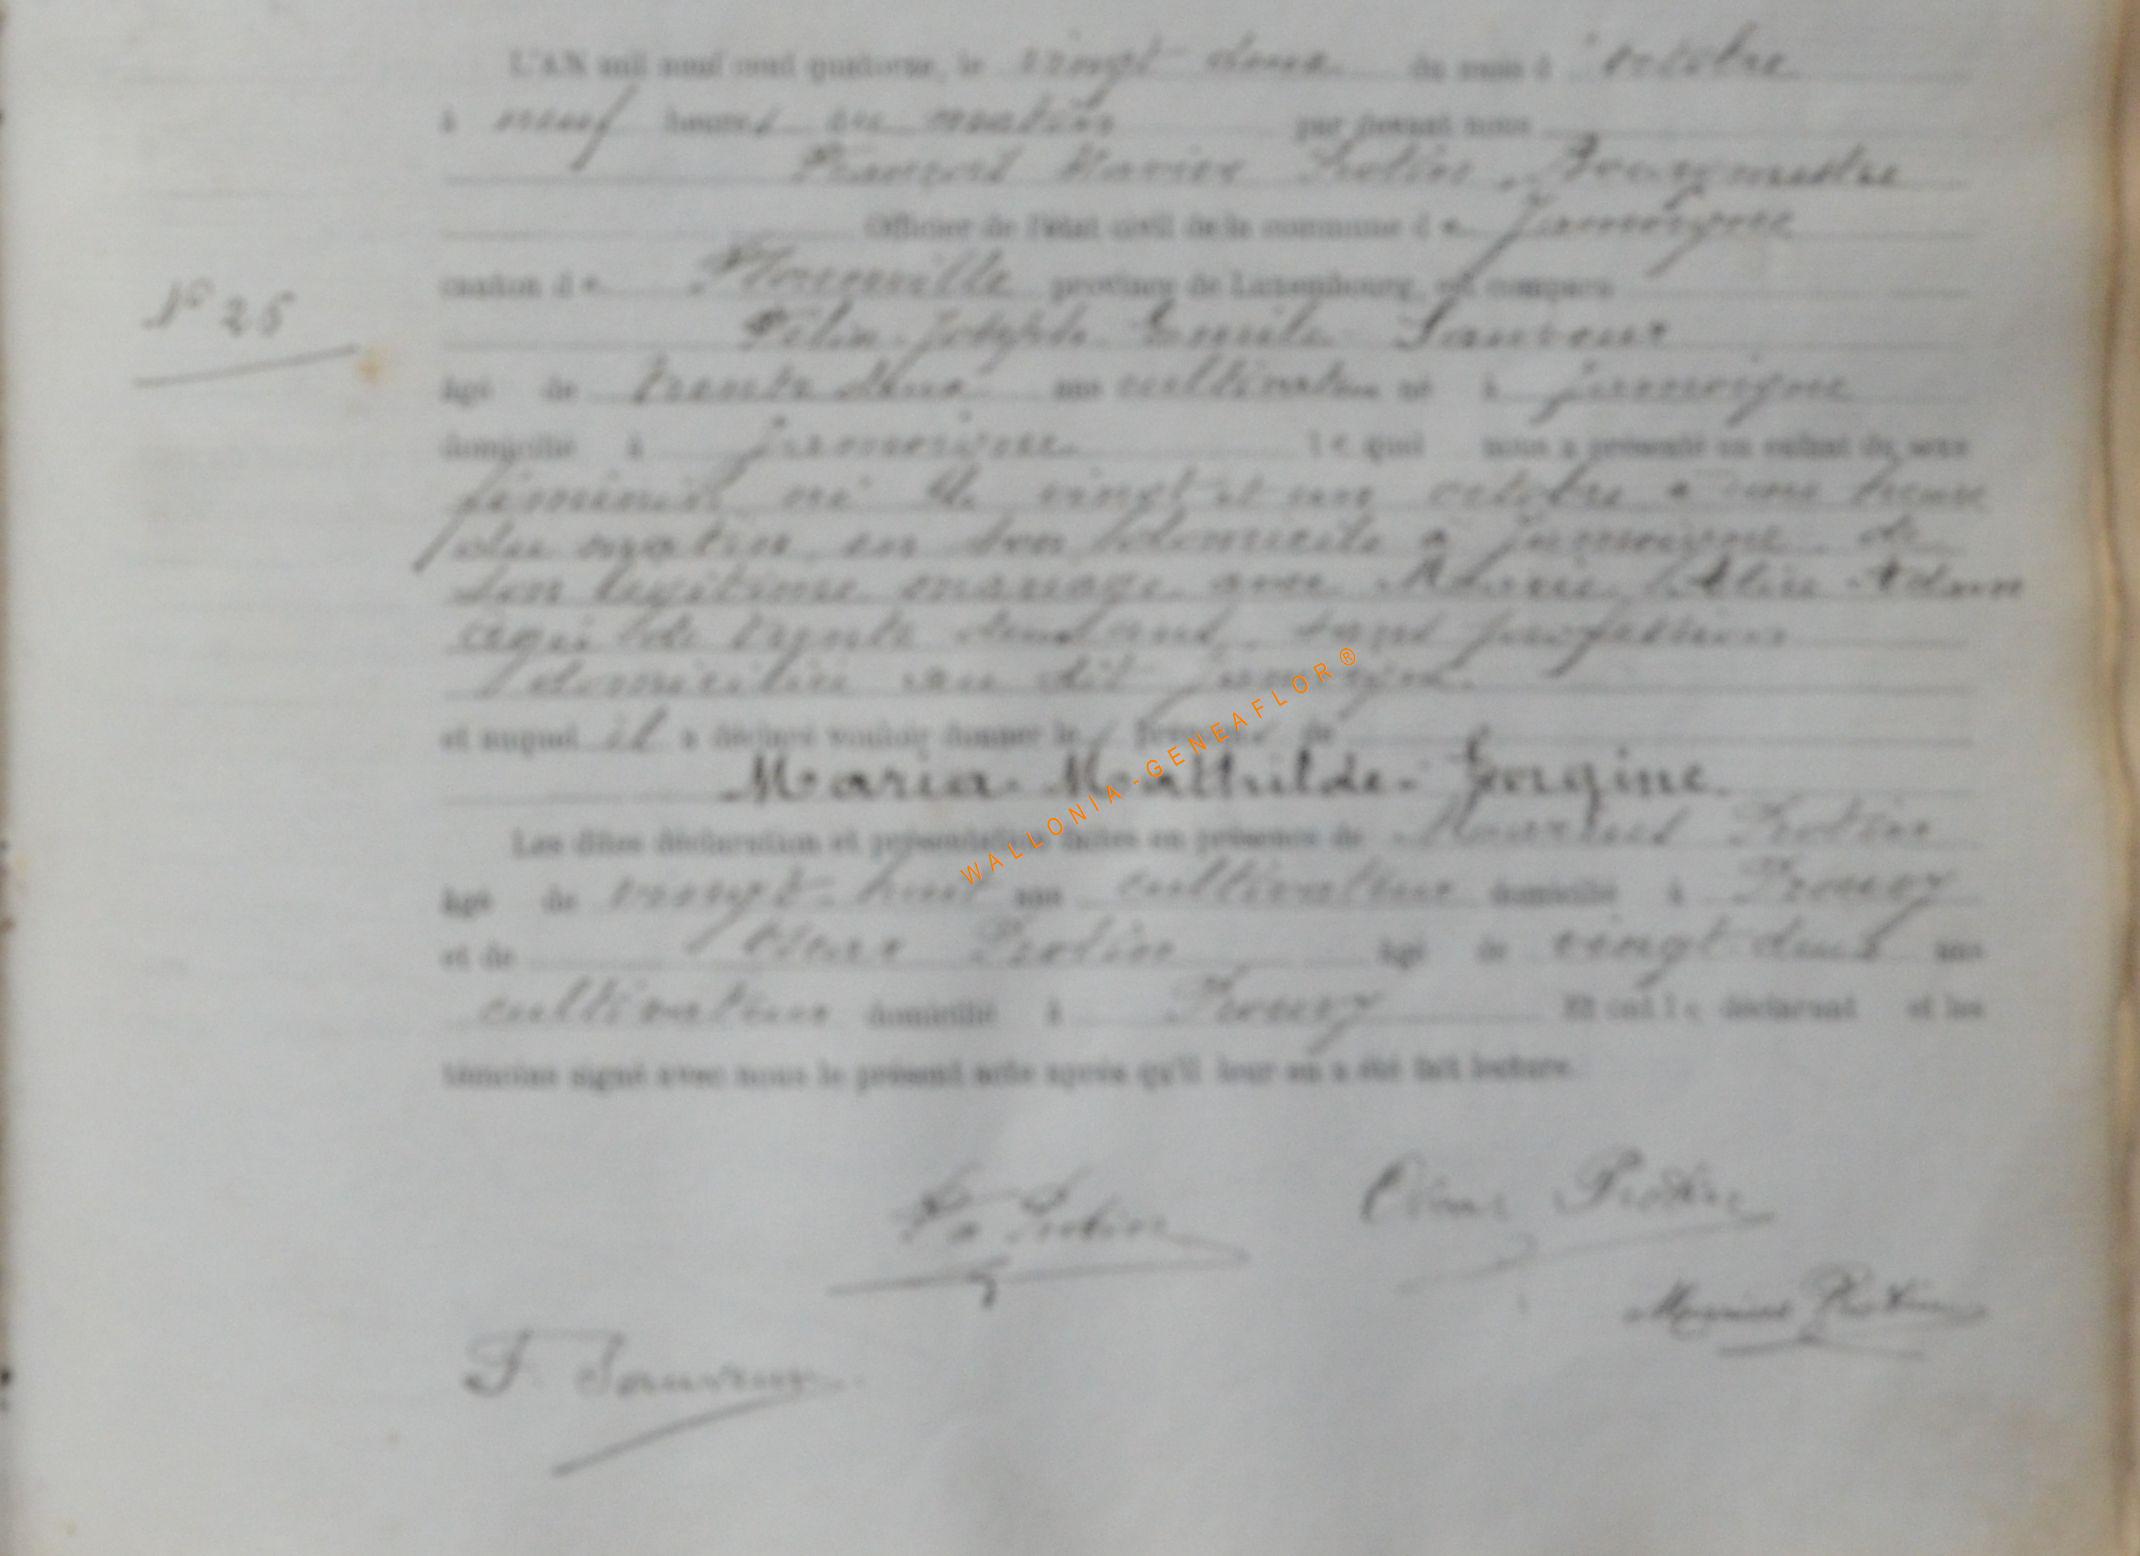 L'AN mil neuf cent quatorze, le vingt deux du mois d'octobre
à neuf heures du matin par devant nous
François Xavier Protin, Bourgmestre
Officier de l'état civil de la commune de Jamoigne
N° 25
canton de Florenville province de Luxembourg, est comparu
Félix-Joseph-Emile Sauveur
âgé de trente deux ans cultivateur né à Jamoigne
domicilié à Jamoigne lequel nous a présenté un enfant du sexe
féminin, né le vingt et un octobre à une heure
du matin en son domicile à Jamoigne de
son légitime mariage avec Marie Adam
âgée de trente deux ans, sans profession
domiciliée au dit Jamoigne.
et auquel il a déclaré vouloir donner les prénoms de
Maria-Mathilde-Gorgine.
Les dites déclaration et présentation faites en présence de Protin
âgé de vingt-huit ans cultivateur domicilié à Prouvy
et de Oscar Protin âgé de vingt deux ans
cultivateur domicilié à Prouvy Et ont le déclarant et les
témoins signé avec nous le présent acte après qu'il leur en a été fait lecture.
Protin
Oscar Protin
Protin
F. Sauveur
WALLONIA-GENEAFLOR ®